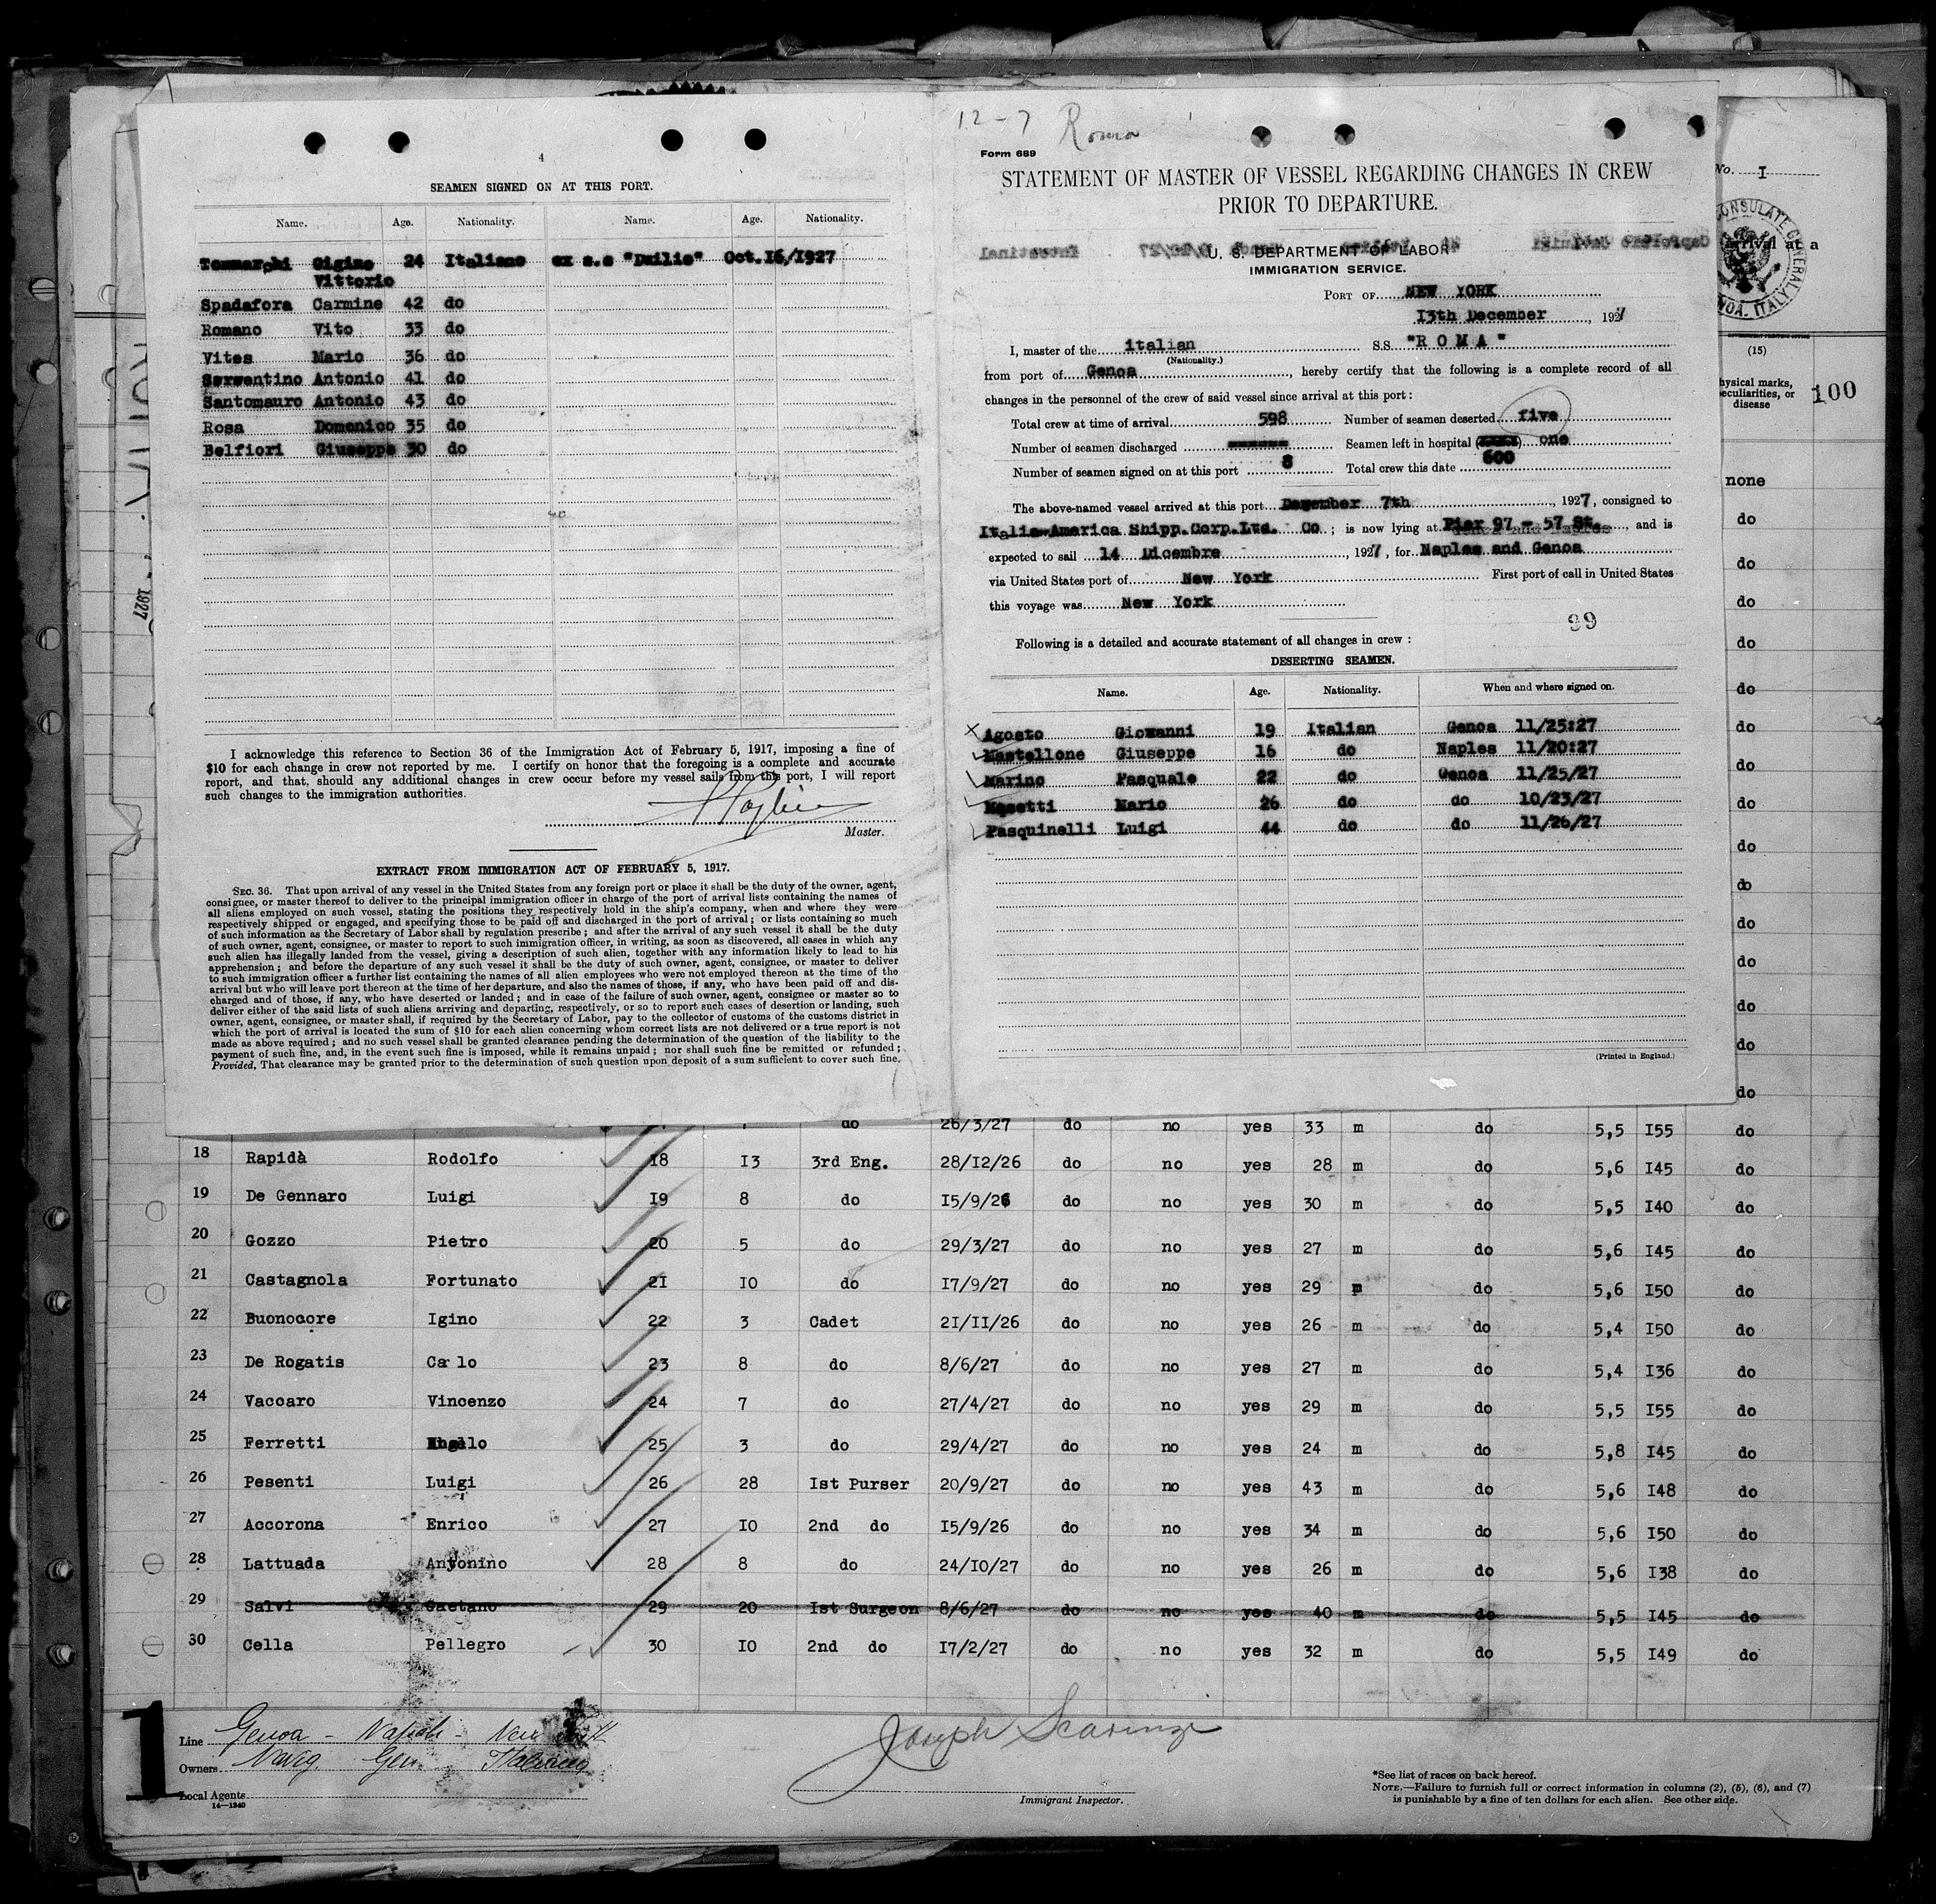 4
SEAMEN SIGNED ON AT THIS PORT.
Name. Age. Nationality. Name. Age. Nationality.
Gigino 24 Italiano ex s.s "Duilio" Oct.16/1927
Vittorio
Spadafora Carmine 42 do
Romano Vito 33 do
Vites Mario 36 do
Sorrentino Antonio 41 do
Santomauro Antonio 43 do
Rosa Domenico 35 do
Belfiori Giuseppe 30 do
I acknowledge this reference to Section 36 of the Immigration Act of February 5, 1917, imposing a fine of
$10 for each change in crew not reported by me. I certify on honor that the foregoing is a complete and accurate
report, and that, should any additional changes in crew occur before my vessel sails from this port, I will report
such changes to the immigration authorities.
Master.
EXTRACT FROM IMMIGRATION ACT OF FEBRUARY 5, 1917.
SEC. 36. That upon arrival of any vessel in the United States from any foreign port or place it shall be the duty of the owner, agent,
consignee, or master thereof to deliver to the principal immigration officer in charge of the port of arrival lists containing the names of
all aliens employed on such vessel, stating the positions they respectively hold in the ship's company, when and where they were
respectively shipped or engaged, and specifying those to be paid off and discharged in the port of arrival; or lists containing so much
of such information as the Secretary of Labor shall by regulation prescribe; and after the arrival of any such vessel it shall be the duty
of such owner, agent, consignee, or master to report to such immigration officer, in writing, as soon as discovered, all cases in which any
such alien has illegally landed from the vessel, giving a description of such alien, together with any information likely to lead to his
apprehension; and before the departure of any such vessel it shall be the duty of such owner, agent, consignee, or master to deliver
to such immigration officer a further list containing the names of all alien employees who were not employed thereon at the time of the
arrival but who will leave port thereon at the time of her departure, and also the names of those, if any, who have been paid off and dis-
charged and of those, if any, who have deserted or landed; and in case of the failure of such owner, agent, consignee or master so to
deliver either of the said lists of such aliens arriving and departing, respectively, or so to report such cases of desertion or landing, such
owner, agent, consignee, or master shall, if required by the Secretary of Labor, pay to the collector of customs of the customs district in
which the port of arrival is located the sum of $10 for each alien concerning whom correct lists are not delivered or a true report is not
made as above required; and no such vessel shall be granted clearance pending the determination of the question of the liability to the
payment of such fine, and, in the event such fine is imposed, while it remains unpaid; nor shall such fine be remitted or refunded;
Provided, That clearance may be granted prior to the determination of such question upon deposit of a sum sufficient to cover such fine.
12-7 Roma
Form 689
STATEMENT OF MASTER OF VESSEL REGARDING CHANGES IN CREW
PRIOR TO DEPARTURE.
U. S. DEPARTMENT OF LABOR
IMMIGRATION SERVICE.
PORT OF NEW YORK
13th December, 1927
I, master of the italian S.S. "ROMA"
(Nationality.)
from port of Genoa, hereby certify that the following is a complete record of all
changes in the personnel of the crew of said vessel since arrival at this port:
Total crew at time of arrival 598 Number of seamen deserted five
Number of seamen discharged Seamen left in hospital one
Number of seamen signed on at this port 8 Total crew this date 600
The above-named vessel arrived at this port December 7th, 1927, consigned to
Italia-America Shipp.Corp.Ltd. Co; is now lying at Pier 97 - 57 St., and is
expected to sail 14 Dicembre, 1927, for Naples and Genoa
via United States port of New York First port of call in United States
this voyage was New York
99
Following is a detailed and accurate statement of all changes in crew:
DESERTING SEAMEN.
Name. Age. Nationality. When and where signed on.
Agosto Giovanni 19 Italian Genoa 11/25:27
Mastellone Giuseppe 16 do Naples 11/20:27
Marino Pasquale 22 do Genoa 11/25/27
Mosetti Mario 26 do do 10/23/27
Pasquinelli Luigi 44 do do 11/26/27
(Printed in England.)
No. I
CONSULATE GENERAL
GENOA, ITALY
arrival at a
(15)
physical marks,
peculiarities, or
disease
100
none
do
do
do
do
do
do
do
do
do
do
do
do
do
do
do
do 26/3/27 do no yes 33 m do 5,5 I55 do
18 Rapidà Rodolfo 18 I3 3rd Eng. 28/I2/26 do no yes 28 m do 5,6 I45 do
19 De Gennaro Luigi I9 8 do I5/9/26 do no yes 30 m do 5,5 I40 do
20 Gozzo Pietro 20 5 do 29/3/27 do no yes 27 m do 5,6 I45 do
21 Castagnola Fortunato 2I I0 do I7/9/27 do no yes 29 m do 5,6 I50 do
22 Buonocore Igino 22 3 Cadet 2I/II/26 do no yes 26 m do 5,4 I50 do
23 De Rogatis Ca lo 23 8 do 8/6/27 do no yes 27 m do 5,4 I36 do
24 Vaccaro Vincenzo 24 7 do 27/4/27 do no yes 29 m do 5,5 I55 do
25 Ferretti 25 3 do 29/4/27 do no yes 24 m do 5,8 I45 do
26 Pesenti Luigi 26 28 Ist Purser 20/9/27 do no yes 43 m do 5,6 I48 do
27 Accorona Enrico 27 I0 2nd do I5/9/26 do no yes 34 m do 5,6 I50 do
28 Lattuada Antonino 28 8 do 24/I0/27 do no yes 26 m do 5,6 I38 do
29 Salvi Gaetano 29 20 Ist Surgeon 8/6/27 do no yes 40 m do 5,5 I45 do
30 Cella Pellegro 30 I0 2nd do I7/2/27 do no yes 32 m do 5,5 I49 do
1
Line Genoa - Napoli - New York
Owners Navig. Gen. Italiana
Local Agents
14-1240
Joseph Scaringi
Immigrant Inspector.
*See list of races on back hereof.
NOTE.—Failure to furnish full or correct information in columns (2), (5), (6), and (7)
is punishable by a fine of ten dollars for each alien. See other side.
1927